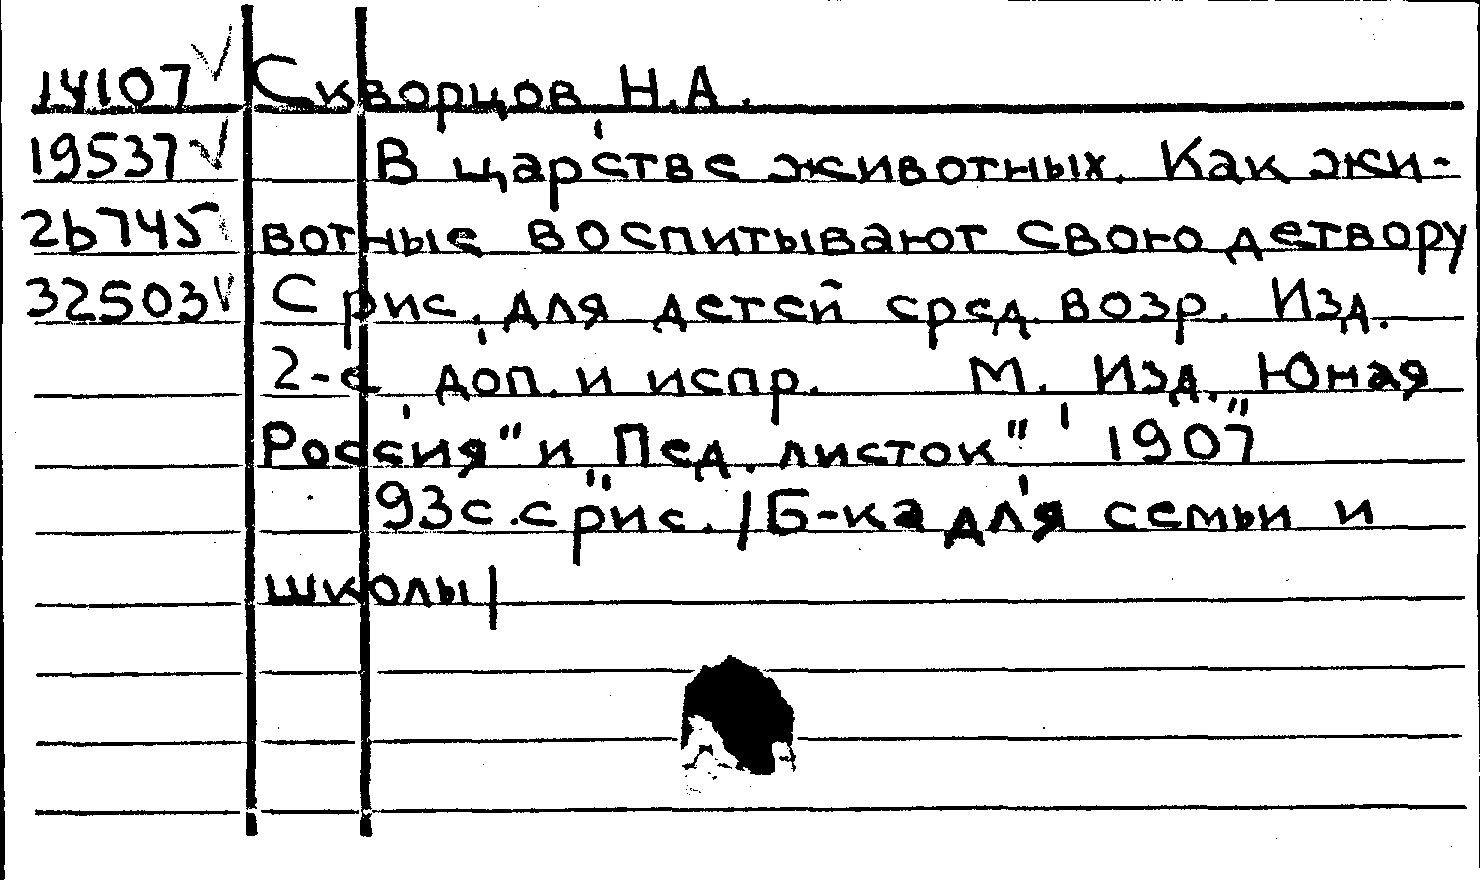 14107 Скворцов, Н.А.
19537 В царстве животных. Как жи-
26745 вотные воспитывают свою детвору
32503 С рис. для детей сред. возр. Изд.
2-е, доп. и испр. М. Изд. "Юная
Россия" и "Пед. листок" 1907
93с. с рис. /Б-ка для семьи и
школы/